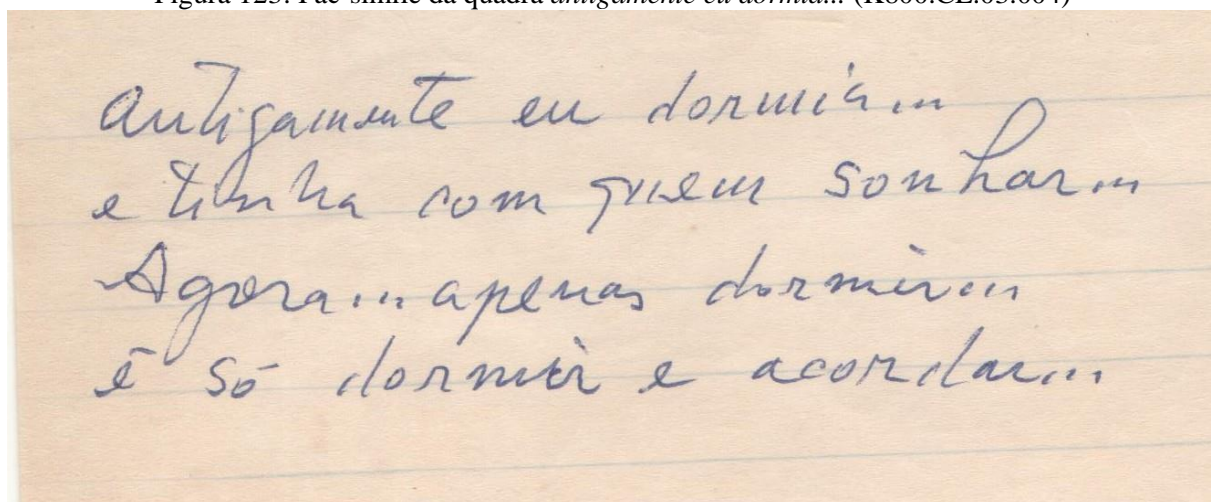 Figura 123: Fac-símile da quadra antigamente eu dormia... (R800.CL.05.004)
antigamente eu dormia...
e tinha com quem sonhar...
Agora... apenas dormir...
é só dormir e acordar...